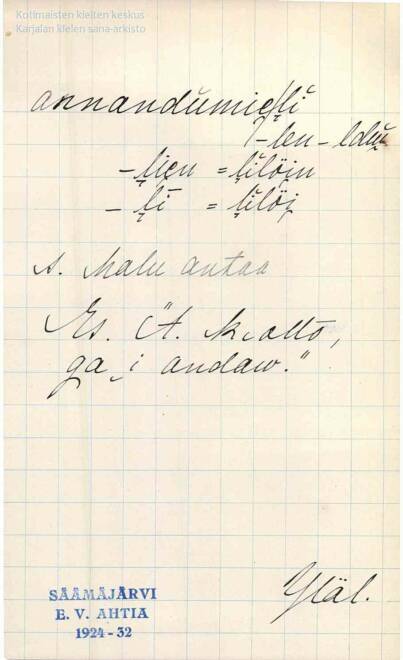 Kotimaisten kielten keskus
Karjalan kielen sana-arkisto
annandumieļi
-len -ldu
-ļieu = ļilöin
-ļi = ļilöi
s. halu antaa
Es. "A.
ga i andaw."
SÄÄMÄJÄRVI
E. V. AHTIA
1924-32
Yläl.